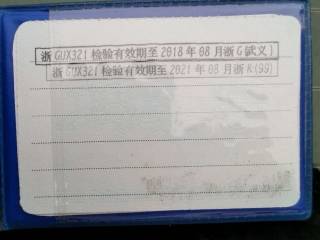 浙GUX321检验有效期至2018年08月浙G(武义)
浙GUX321检验有效期至2021年08月浙K(99)